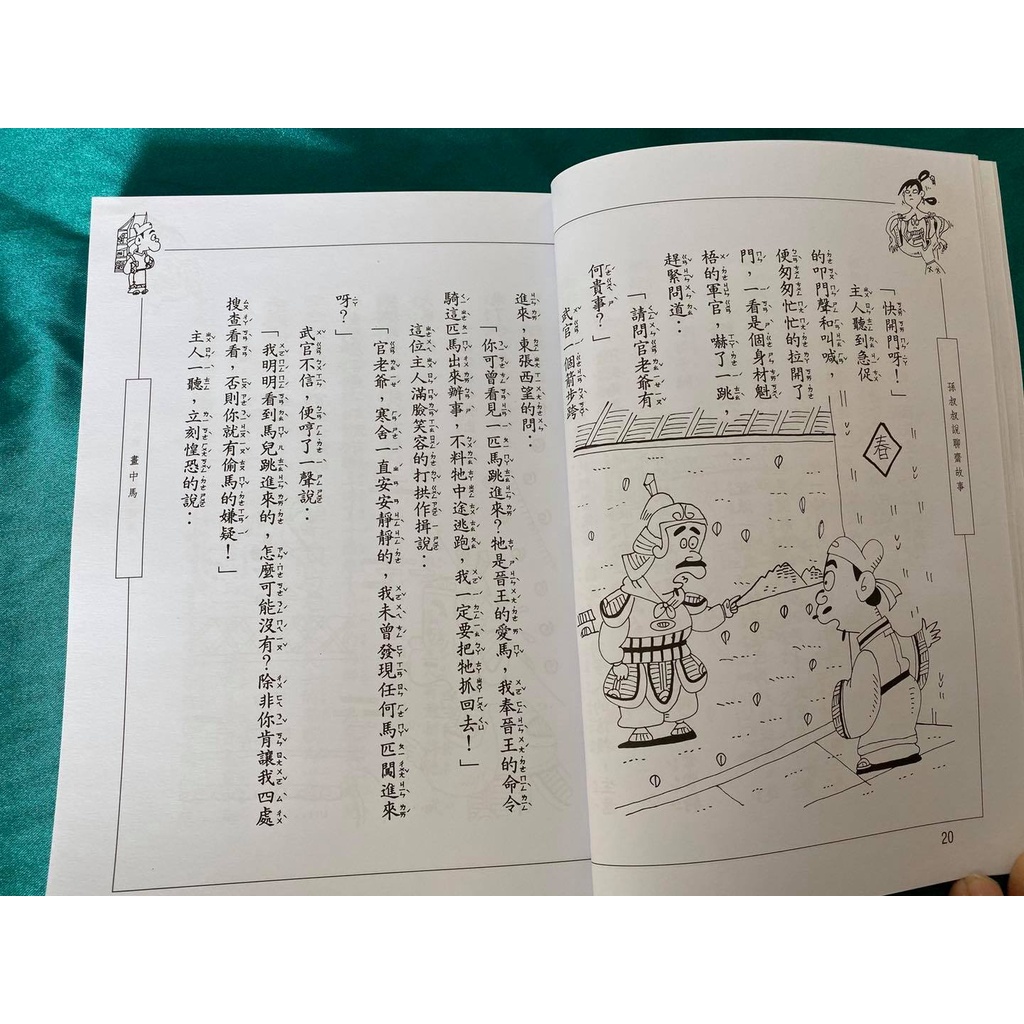 孫叔叔說聊齋故事
「快開門呀！」
主人聽到急促
的叩門聲和叫喊，
便匆匆忙忙的拉開了
門，一看是個身材魁
梧的軍官，嚇了一跳，
趕緊問道：
「請問官老爺有
何貴事？」
武官一個箭步跨
春
20
進來，東張西望的問：
「你可曾看見一匹馬跳進來？牠是晉王的愛馬，我奉晉王的命令
騎這匹馬出來辦事，不料牠中途逃跑，我一定要把牠抓回去！」
這位主人滿臉笑容的打拱作揖說：
「官老爺，寒舍一直安安靜靜的，我未曾發現任何馬匹闖進來
呀？」
武官不信，便哼了一聲說：
「我明明看到馬兒跳進來的，怎麼可能沒有？除非你肯讓我四處
搜查看看，否則你就有偷馬的嫌疑！」
主人一聽，立刻惶恐的說：
畫中馬